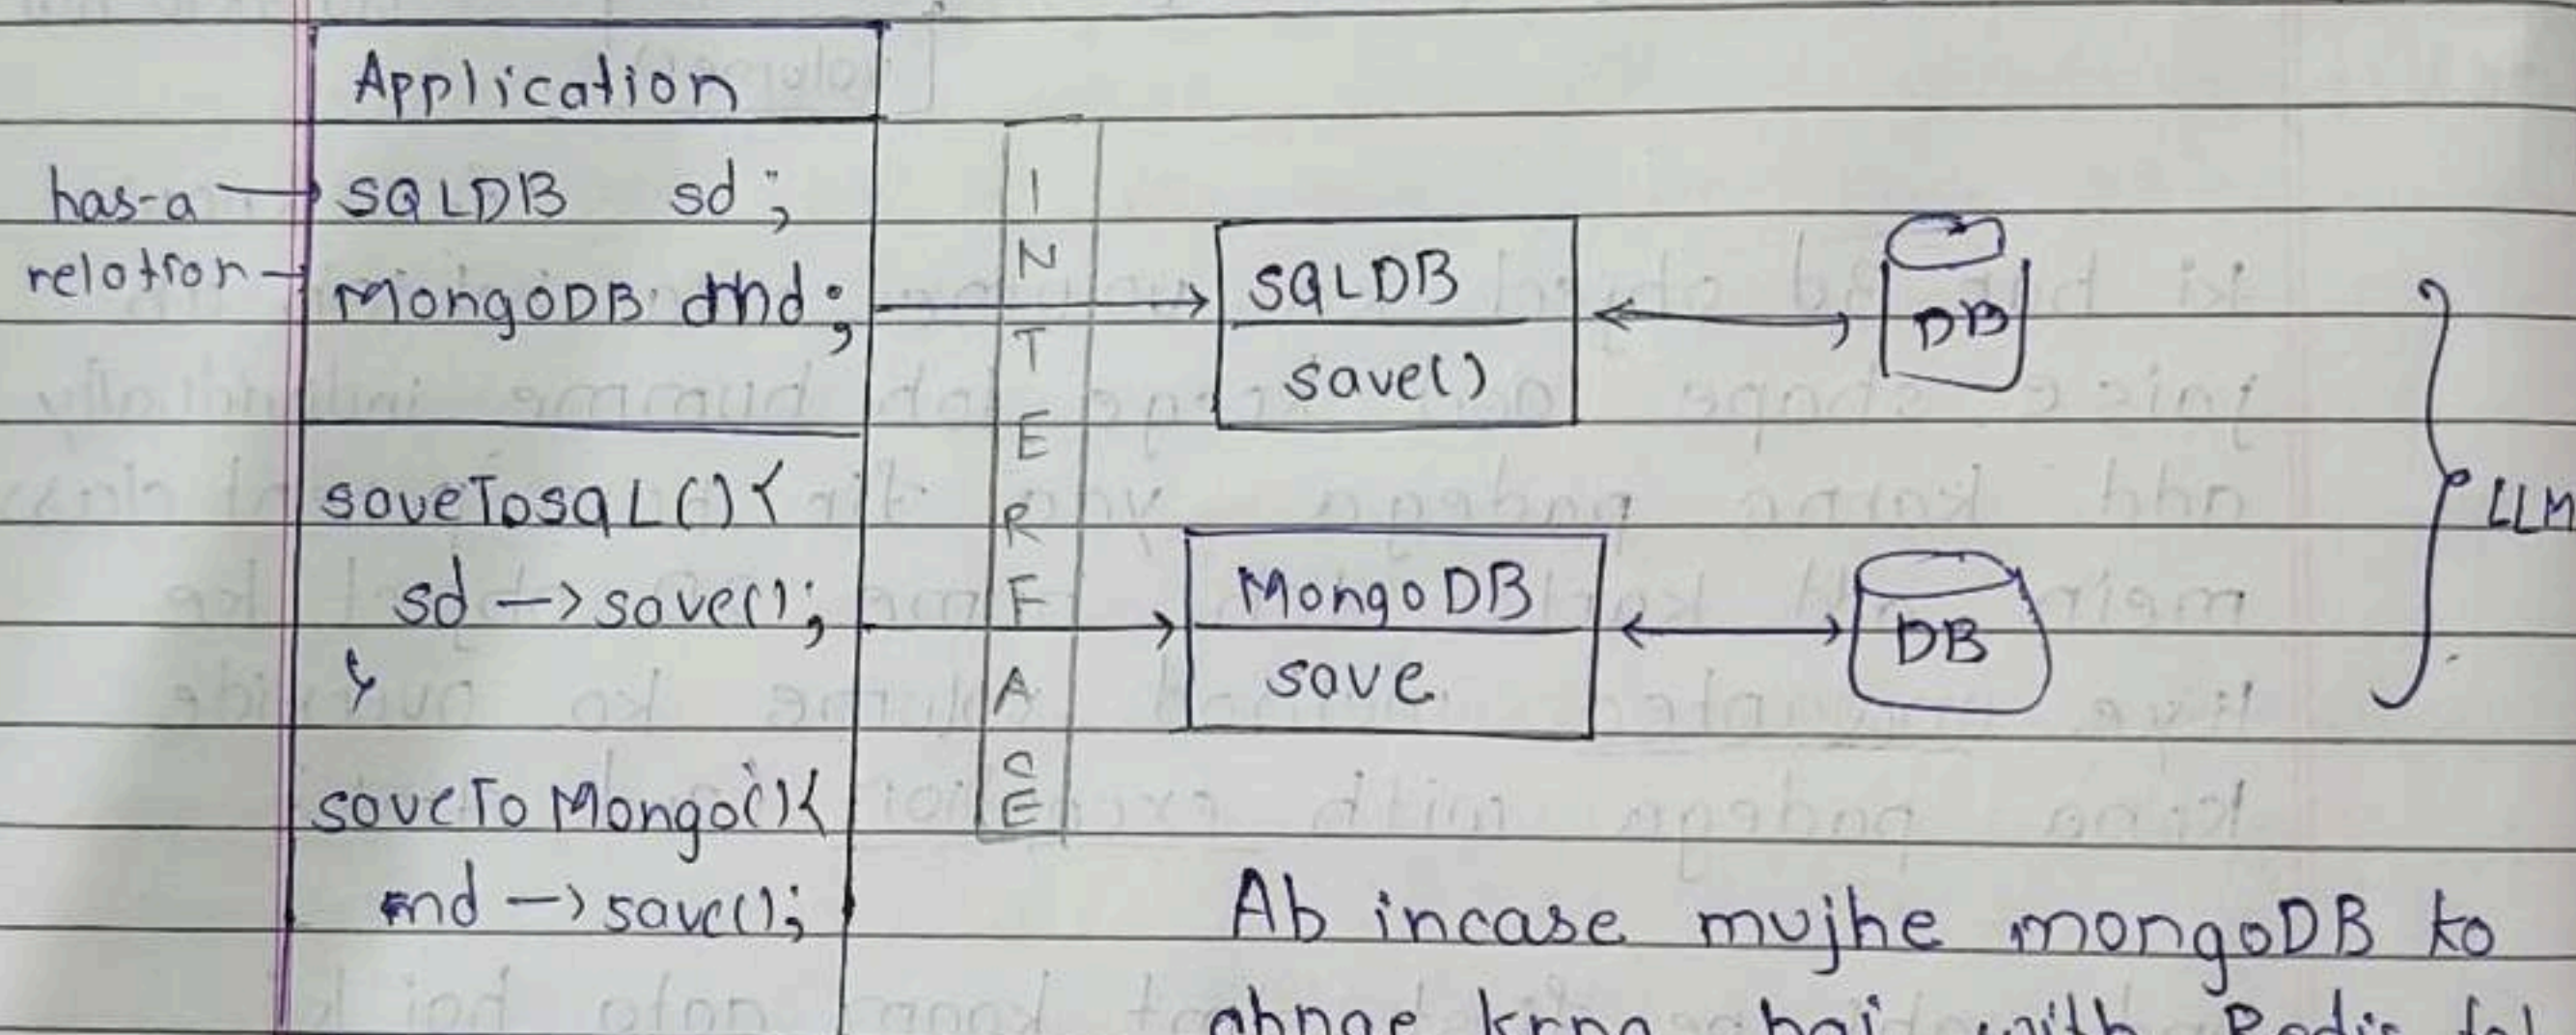 Application
has-a
SQLDB sd;
relation
MongoDB md;
saveToSQL(){
sd -> save();
}
saveToMongo(){
md -> save();
INTERFACE
SQLDB
save()
DB
MongoDB
save
DB
LLM
Ab incase mujhe mongoDB ko
krna hai with